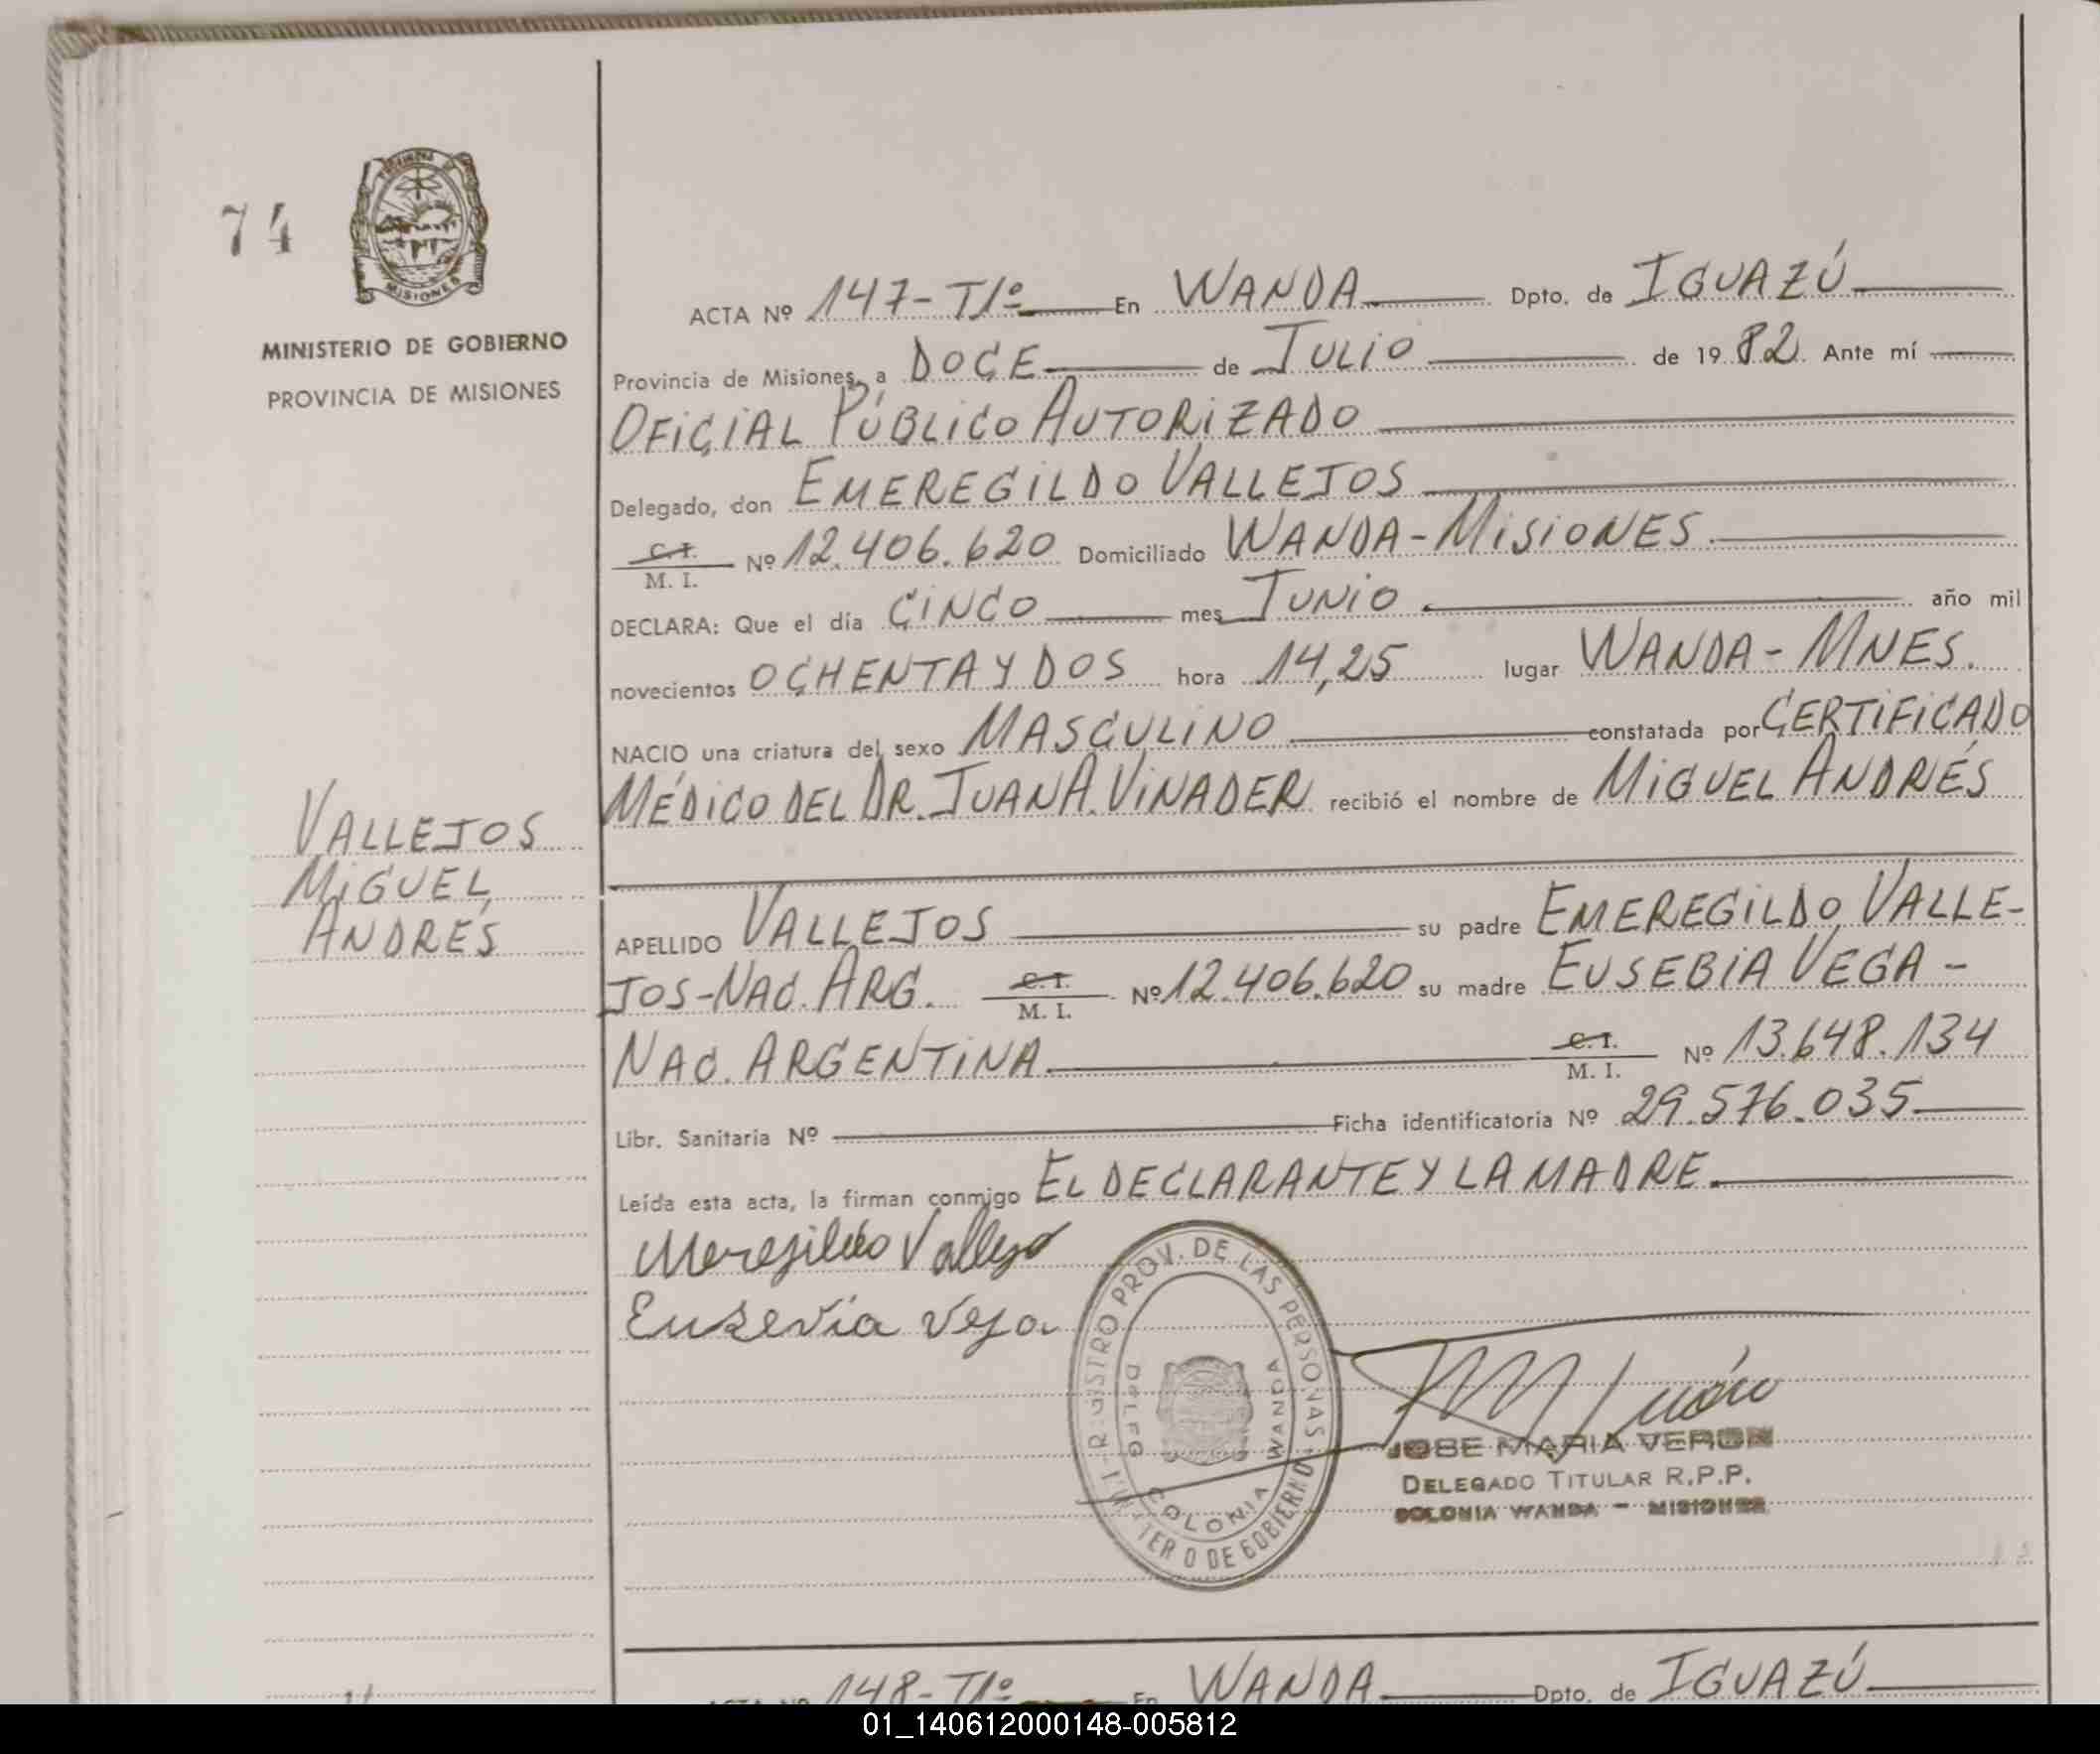 74
MISIONES
MINISTERIO DE GOBIERNO
PROVINCIA DE MISIONES
VALLEJOS
MIGUEL
ANDRÉS
ACTA Nº 147-T1º En WANDA Dpto. de IGUAZÚ
Provincia de Misiones, a DOCE de JULIO de 1982 Ante mí
OFICIAL PÚBLICO AUTORIZADO
Delegado, don EMEREGILDO VALLEJOS
C.I.
M. I. Nº 12.406.620 Domiciliado WANDA-MISIONES
DECLARA: Que el día CINCO mes JUNIO año mil
novecientos OCHENTA Y DOS hora 14,25 lugar WANDA-MNES.
NACIO una criatura del sexo MASCULINO constatada por CERTIFICADO
MÉDICO DEL DR. JUAN A. VINADER recibió el nombre de MIGUEL ANDRÉS
APELLIDO VALLEJOS su padre EMEREGILDO VALLE-
JOS-NAC. ARG. C.I. M. I. Nº 12.406.620 su madre EUSEBIA VEGA -
NAC. ARGENTINA C.I. M. I. Nº 13.648.134
Libr. Sanitaria Nº Ficha identificatoria Nº 29.576.035
Leída esta acta, la firman conmigo EL DECLARANTE Y LA MADRE.
Meregildo Vallejo
Eusevia Vega
REGISTRO PROV. DE LAS PERSONAS
MINISTERIO DE GOBIERNO
DELEG. COLONIA WANDA
JOSE MARIA VERON
DELEGADO TITULAR R.P.P.
COLONIA WANDA - MISIONES
ACTA Nº 148-T1º En WANDA Dpto. de IGUAZÚ
01_140612000148-005812